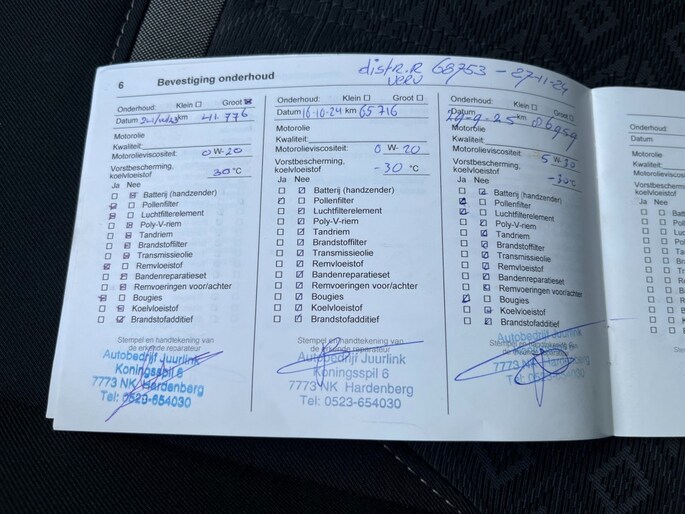 6 Bevestiging onderhoud
distr.R 68753 - 27-11-24
verv
Onderhoud: Klein ☐ Groot ☒
Datum km 41.776
Motorolie
Kwaliteit:
Motorolieviscositeit: 0 W- 20
Vorstbescherming,
koelvloeistof 30 °C
Ja Nee
Batterij (handzender)
Pollenfilter
Luchtfilterelement
Poly-V-riem
Tandriem
Brandstoffilter
Transmissieolie
Remvloeistof
Bandenreparatieset
Remvoeringen voor/achter
Bougies
Koelvloeistof
Brandstofadditief
Stempel en handtekening van
de erkende reparateur
Autobedrijf Juurlink
Koningsspil 6
7773 NK Hardenberg
Tel: 0523-654030
Onderhoud: Klein ☐ Groot ☐
Datum 16-10-24 km 65716
Motorolie
Kwaliteit:
Motorolieviscositeit: 0 W- 20
Vorstbescherming,
koelvloeistof -30 °C
Ja Nee
Batterij (handzender)
Pollenfilter
Luchtfilterelement
Poly-V-riem
Tandriem
Brandstoffilter
Transmissieolie
Remvloeistof
Bandenreparatieset
Remvoeringen voor/achter
Bougies
Koelvloeistof
Brandstofadditief
Stempel en handtekening van
de erkende reparateur
Autobedrijf Juurlink
Koningsspil 6
7773 NK Hardenberg
Tel: 0523-654030
Onderhoud: Klein ☐ Groot ☐
Datum 29-9-25 km 86959
Motorolie
Kwaliteit:
Motorolieviscositeit: 5 W- 30
Vorstbescherming,
koelvloeistof -30°C
Ja Nee
Batterij (handzender)
Pollenfilter
Luchtfilterelement
Poly-V-riem
Tandriem
Brandstoffilter
Transmissieolie
Remvloeistof
Bandenreparatieset
Remvoeringen voor/achter
Bougies
Koelvloeistof
Brandstofadditief
Stempel en handtekening van
de erkende reparateur
Autobedrijf Juurlink
7773 NK
Tel: 0523-654030
Onderhoud:
Datum
Motorolie
Kwaliteit:
Motorolieviscositeit:
Vorstbescherming,
koelvloeistof
Ja Nee